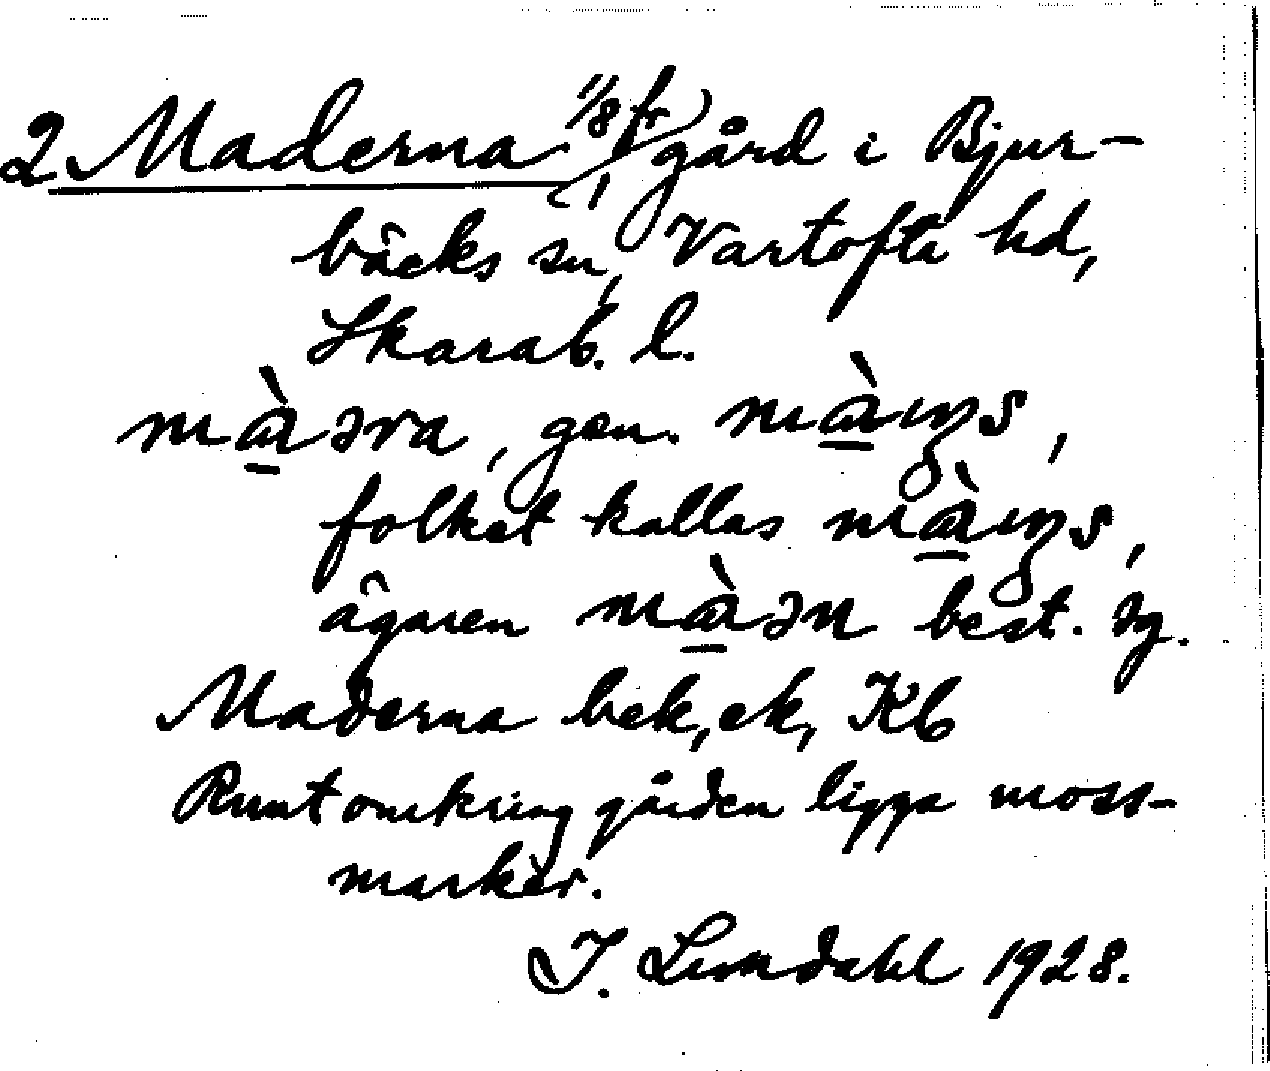 2 Maderna (1/8 fr) gård i Bjur-
bäcks sn, Vartofta hd,
Skarab. l.
màəra, gen.
folket kallas
ägaren màən best. sg.
Maderna bek, ek, Kb
Runtomkring gården ligga moss-
marker.
J. Lundahl 1928.